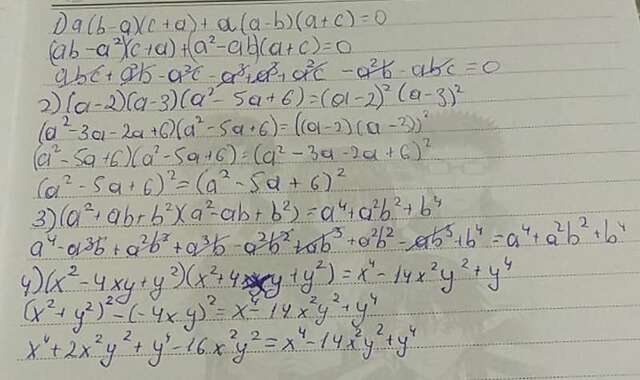 1) a(b-a)(c+a)+a(a-b)(a+c)=0
(ab-a²)(c+a)+(a²-ab)(a+c)=0
abc+a²b-a²c-a³+a³+a²c-a²b-abc=0
2) (a-2)(a-3)(a²-5a+6)=(a-2)²(a-3)²
(a²-3a-2a+6)(a²-5a+6)=((a-2)(a-3))²
(a²-5a+6)(a²-5a+6)=(a²-3a-2a+6)²
(a²-5a+6)²=(a²-5a+6)²
3) (a²+ab+b²)(a²-ab+b²)=a⁴+a²b²+b⁴
a⁴-a³b+a²b²+a³b-a²b²+ab³+a²b²-ab³+b⁴=a⁴+a²b²+b⁴
4) (x²-4xy+y²)(x²+4xy+y²)=x⁴-14x²y²+y⁴
(x²+y²)²-(-4xy)²=x⁴-14x²y²+y⁴
x⁴+2x²y²+y⁴-16x²y²=x⁴-14x²y²+y⁴